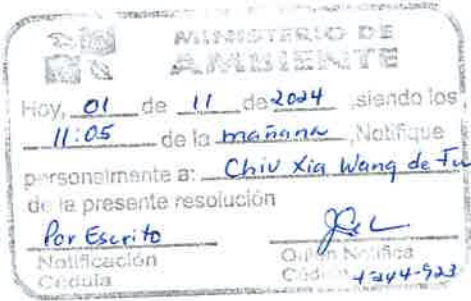 MINISTERIO DE
AMBIENTE
Hoy, 01 de 11 de 2024, siendo los
11:05 de la mañana, Notifique
personalmente a: Chiv Xia Wang de Fu
de la presente resolución
Por Escrito
Notificación Quien Notifica
Cédula Cédula 4-244-923